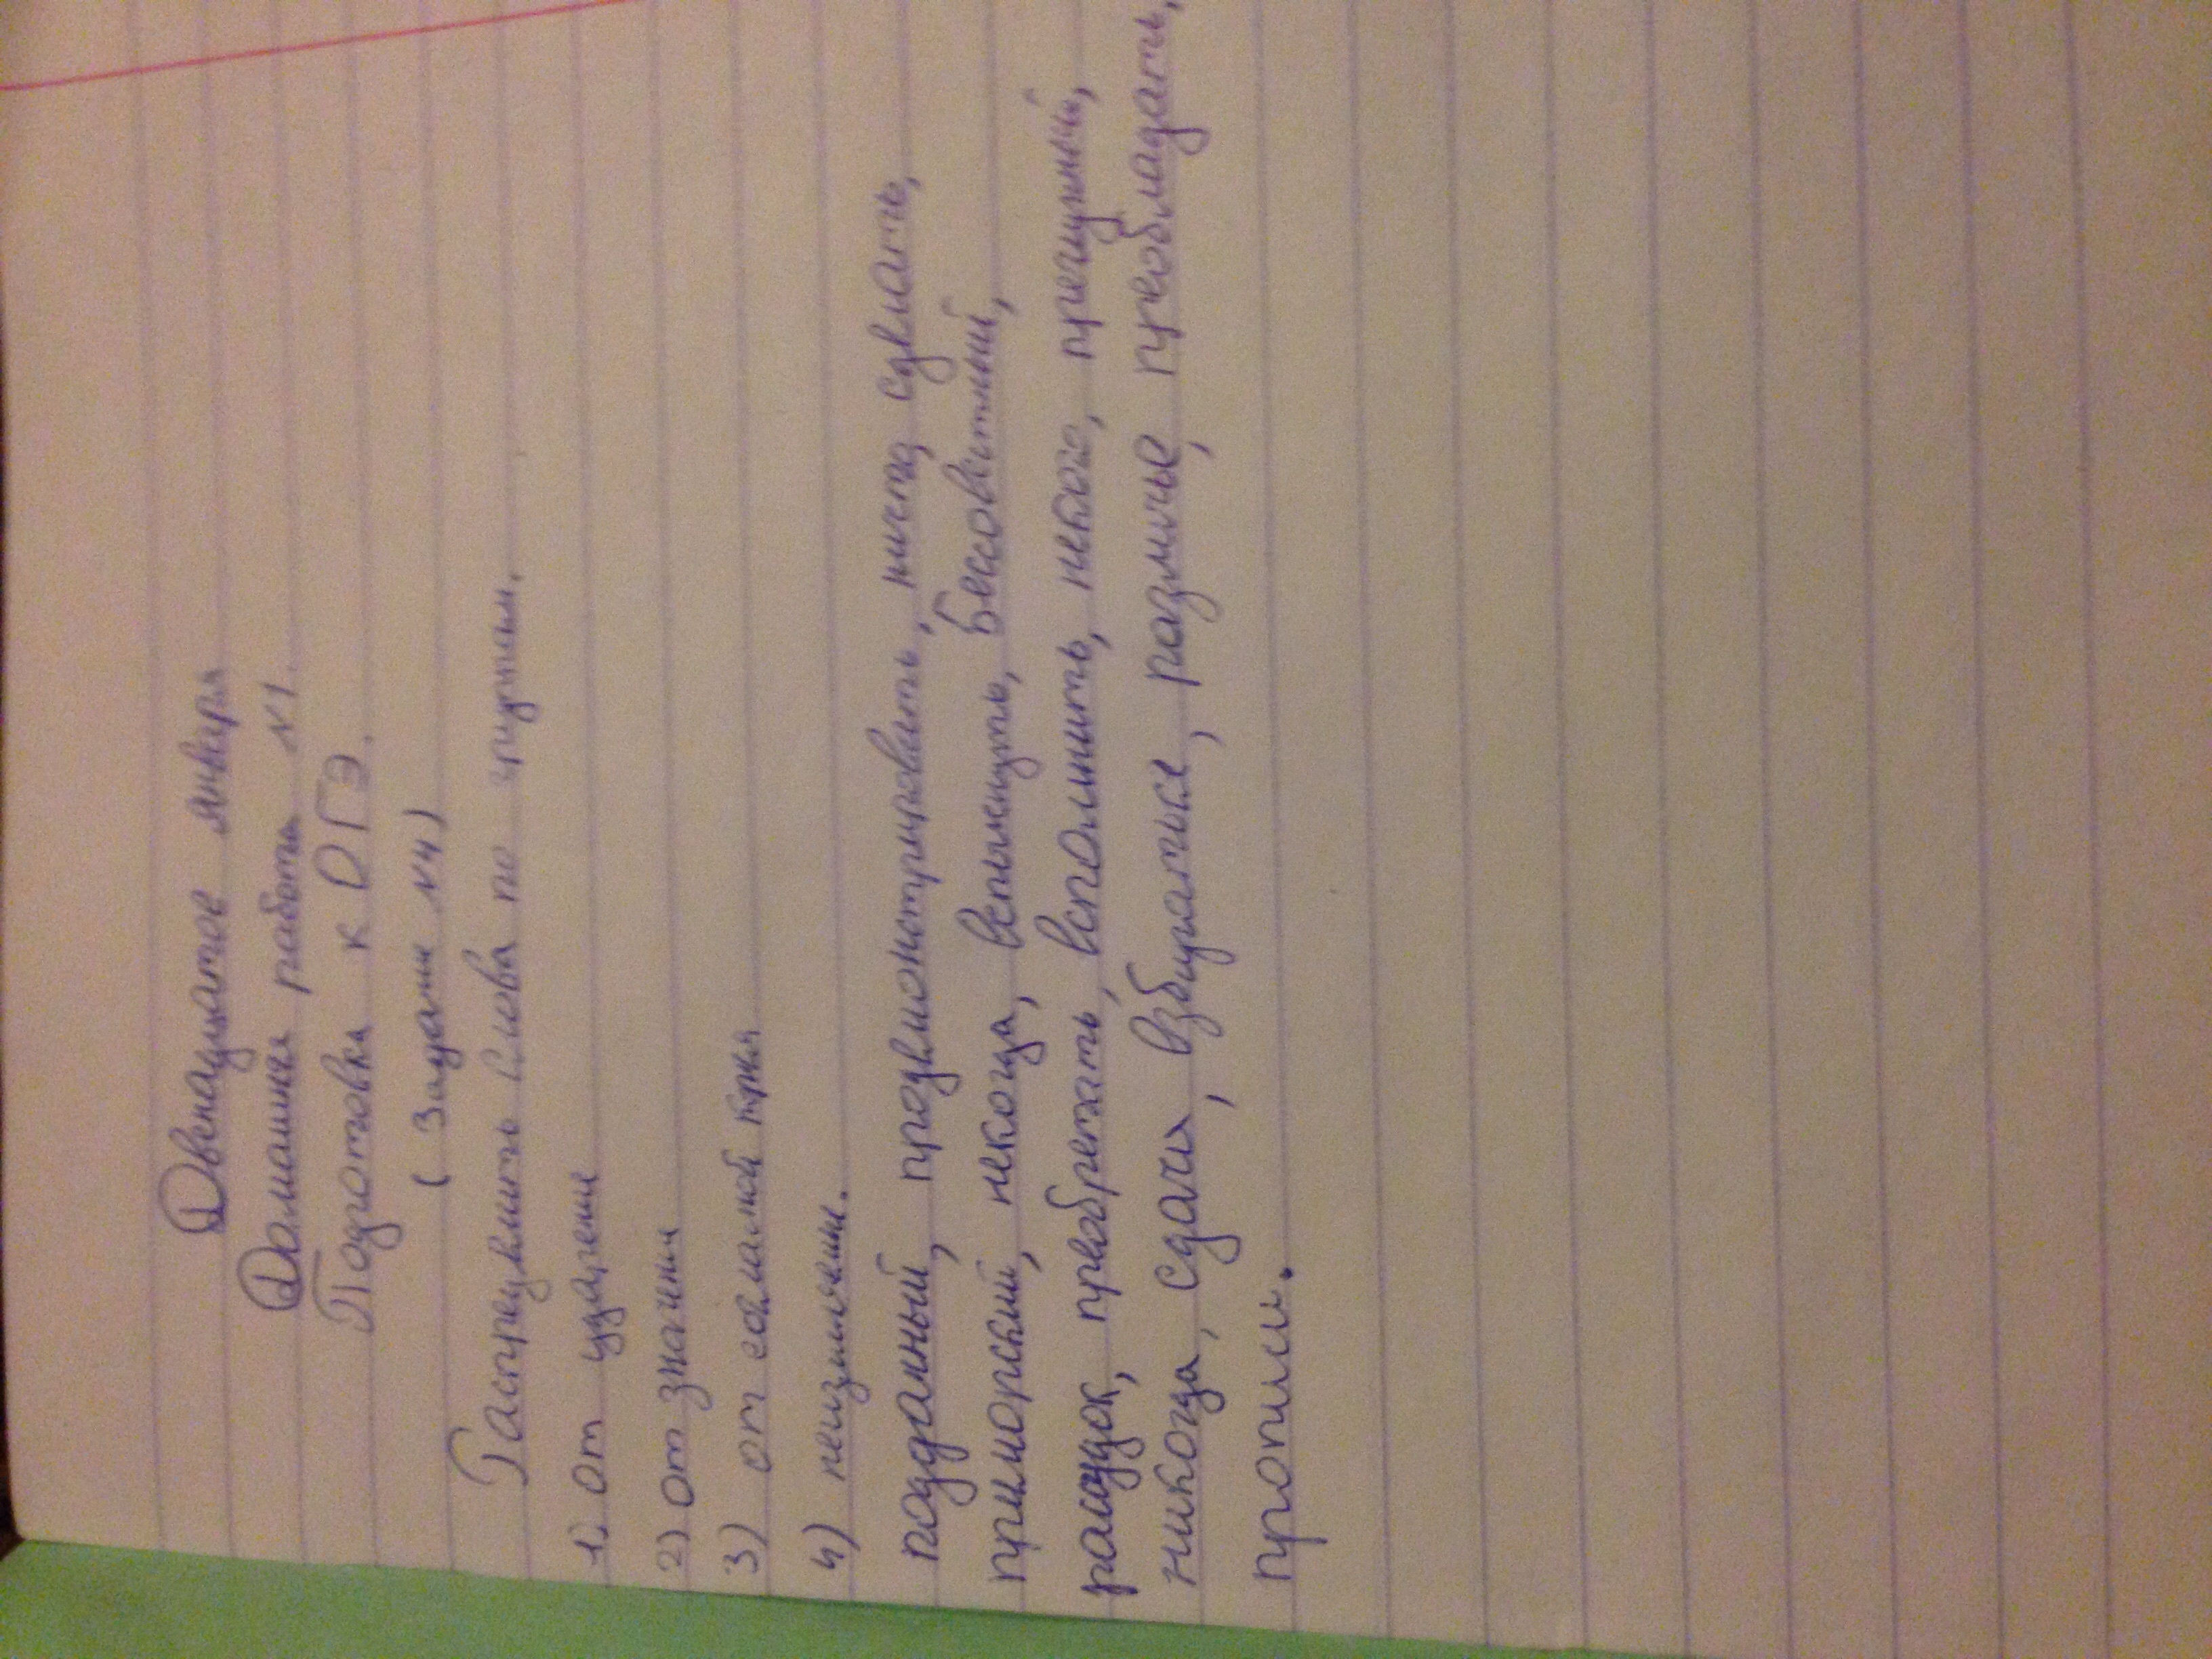 Двенадцатое января
Домашняя работа №1.
Подготовка к ОГЭ.
( Задание №4)
Распределить слова по группам.
1) от ударения
2) от значения
3) от согласной корня
4) неизменяем.
подданный, продемонстрировать, сделать,
приморский, некогда, вспыхнуть, бессовестный,
рассудок, приобретать, вспомнить, некого,
никогда, сдача, взбираться, различие, преобладать,
прописи.